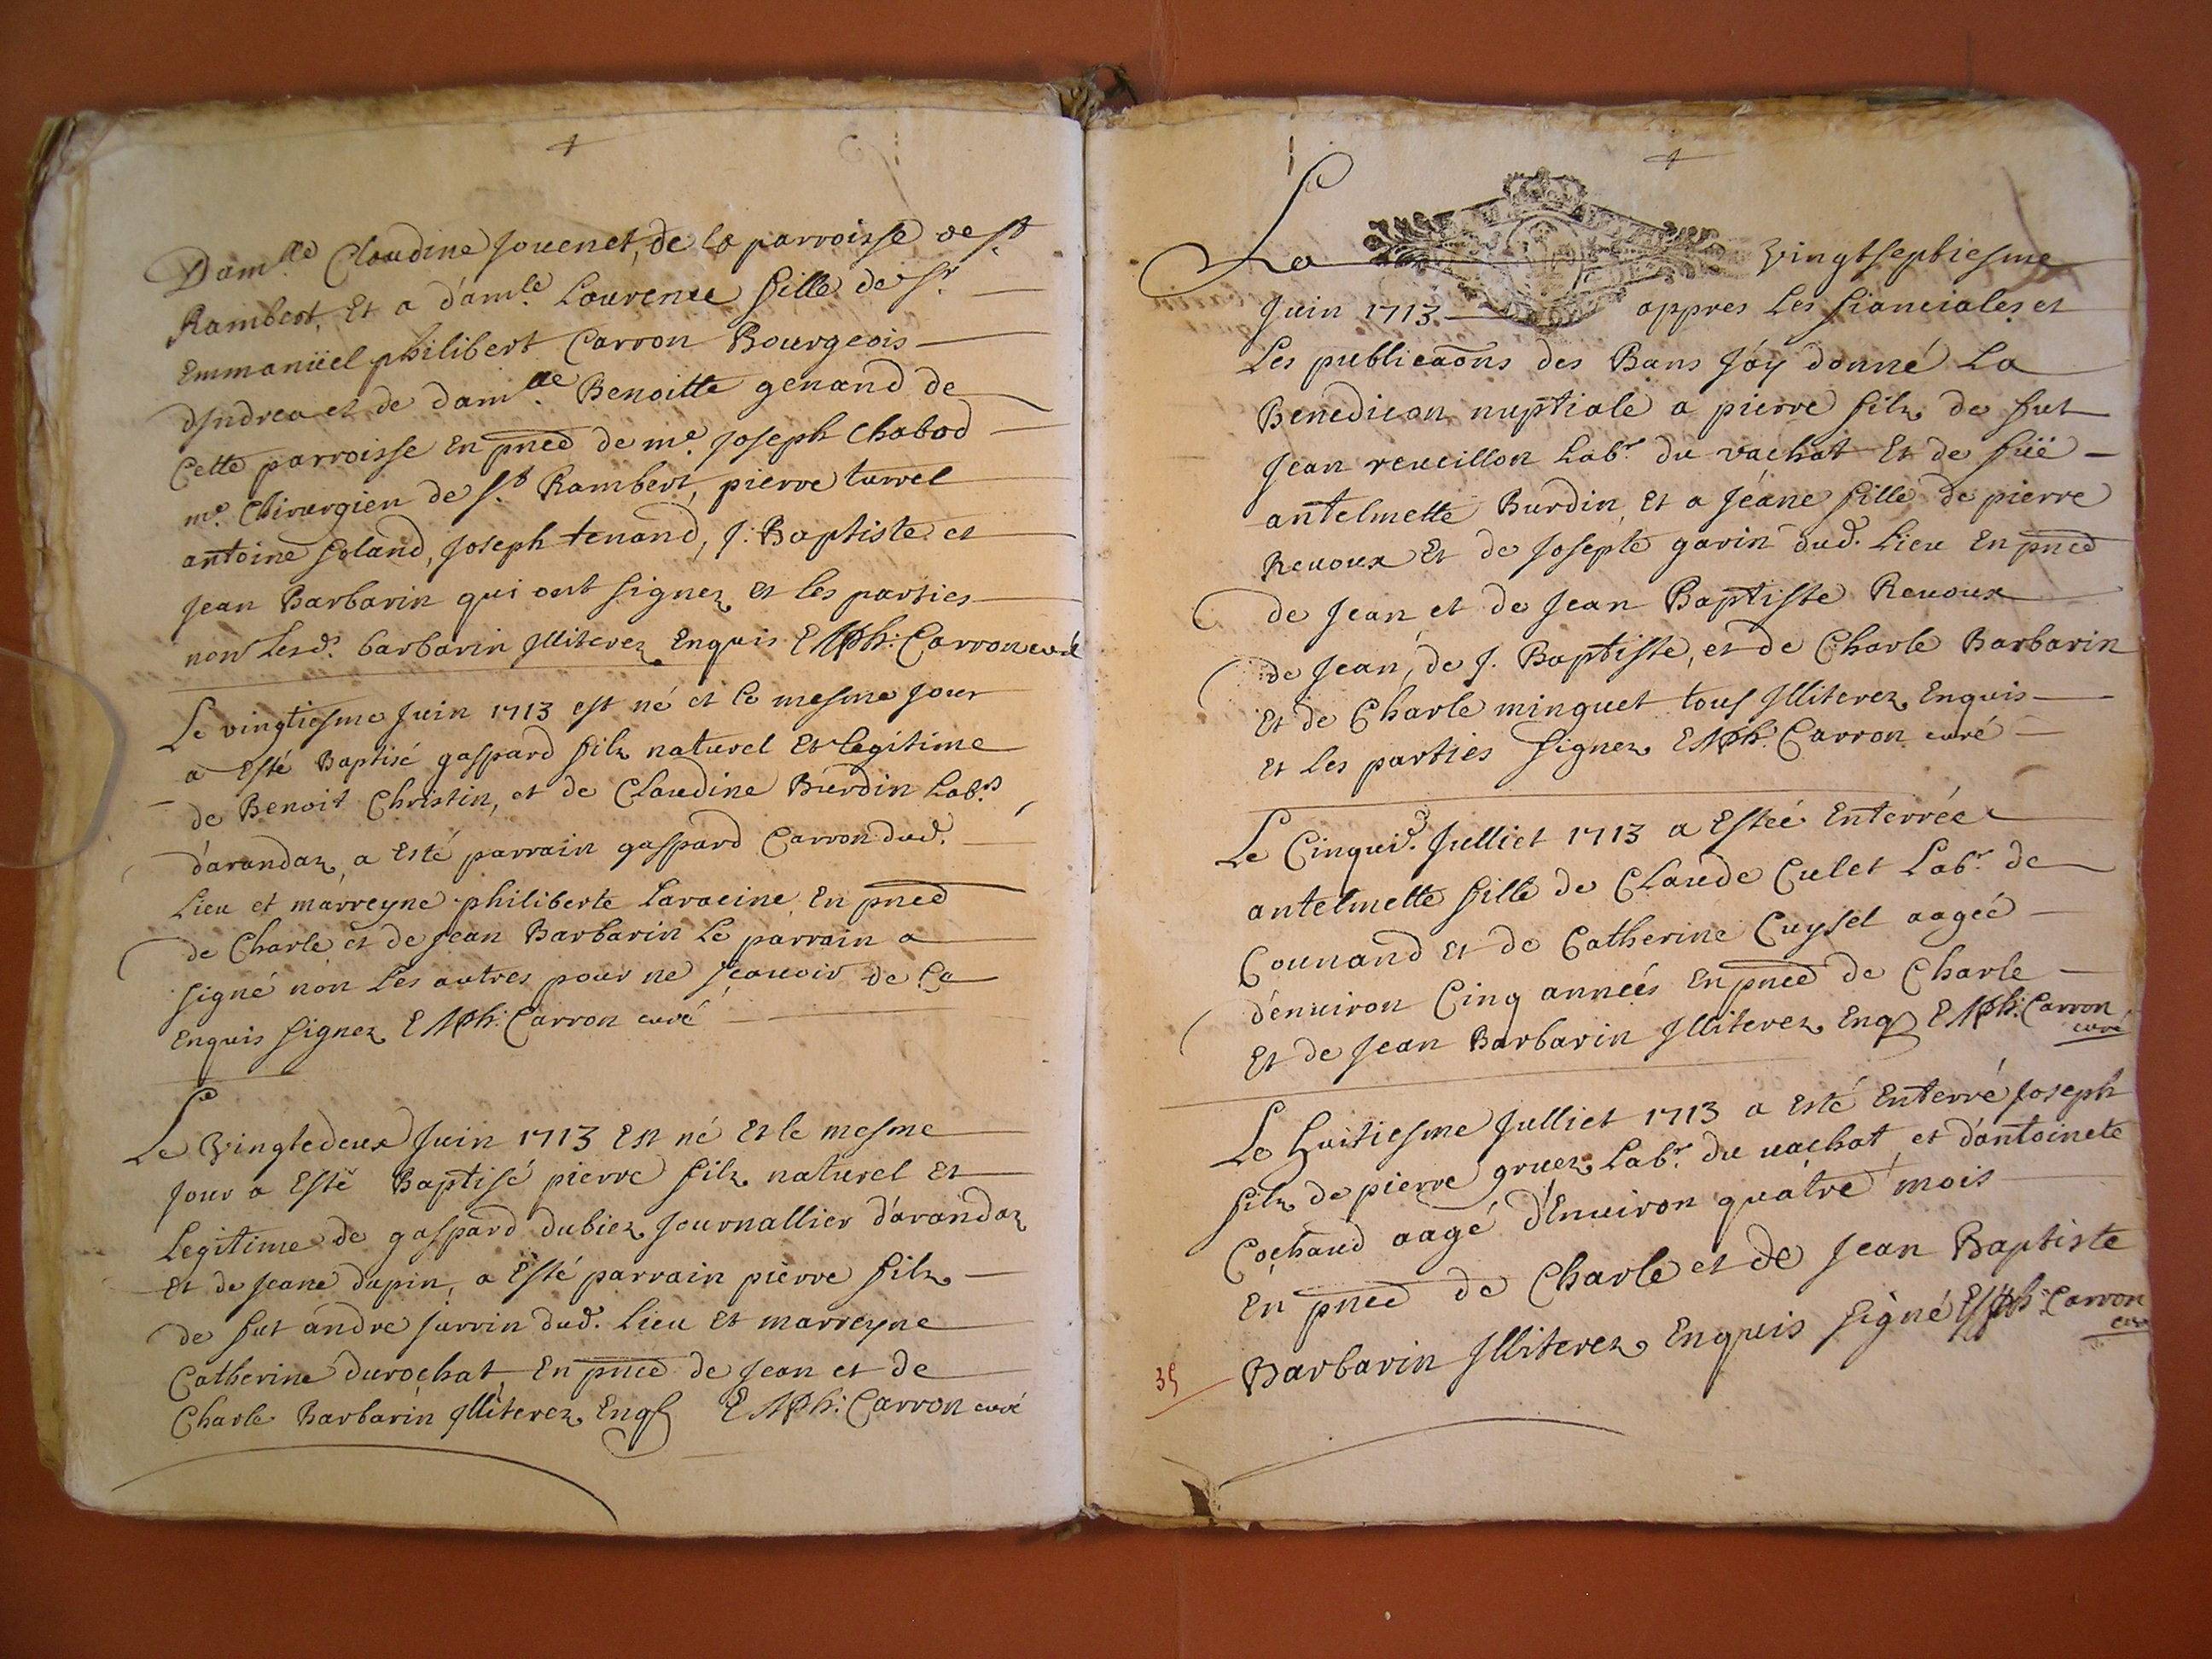 Dam.lle Claudine Jouenet, de la parroisse de St
Rambert, Et a dam.le Laurence fille de Sr.
Emmanüel philibert Carron Bourgeois
dyndrea et de dam.lle Benoitte genand de
Cette parroisse En pnce de me. Joseph Chabod
me. Chirurgien de St Rambert, pierre turrel
antoine Goland, Joseph tenand, J. Baptiste et
Jean Barbarin qui ont signez et les parties
non Lesd. barbarin Jlliterez Enquis E Mph: Carron curé
Le vingtiesme Juin 1713 est né et le mesme Jour
a Esté Baptisé gaspard filz naturel Et legitime
de Benoit Christin, et de Claudine Burdin Labrs
d'arandaz, a Esté parrain gaspard Carron dud.
Lieu et marreyne philiberte Laracine En pnce
de Charle et de Jean Barbarin Le parrain a
signé non Les autres pour ne sçauoir de Ce
Enquis signez E Mph: Carron curé
Le Vingtedeux Juin 1713 Est né Et le mesme
Jour a Esté Baptisé pierre filz naturel Et
Legitime de gaspard dubiez Journallier d'arandaz
Et de Jeane dupin, a Esté parrain pierre filz
de fut andre Jurrin dud. Lieu Et marreyne
Catherine durochat En pnce de Jean et de
Charle Barbarin Jlliterez Enqs E Mph: Carron curé
Le vingtseptiesme
Juin 1713 appres Les fianciales et
Les publicaons des Bans J'ay donné La
Benedicon nuptiale a pierre filz de fut
Jean reueillon Labr. du vachat Et de füe
antelmette Burdin Et a Jéane fille de pierre
Reuoux Et de Josepte garin dud. Lieu En pnce
de Jean et de Jean Baptiste Reuoux
de Jean, de J. Baptiste, et de Charle Barbarin
Et de Charle minguet tous Jlliterez Enquis
Et les parties Signez E Mph: Carron curé
Le Cinquie. Julliet 1713 a Estéé Enterrée
antelmette fille de Claude Culet Labr. de
Counand Et de Catherine Cuysel aageé
d'enuiron Cinq années En pnce de Charle
Et de Jean Barbarin Jlliterez Enq E Mph: Carron
curé
Le Huitiesme Julliet 1713 a Esté Enterré Joseph
filz de pierre gruez Labr. du uachat et d'antoinete
Cochaud aagé d'Enuiron quatre mois
En pnce de Charle et de Jean Baptiste
Barbarin Jlliterez Enquis Signé E Mph: Carron
curé
35